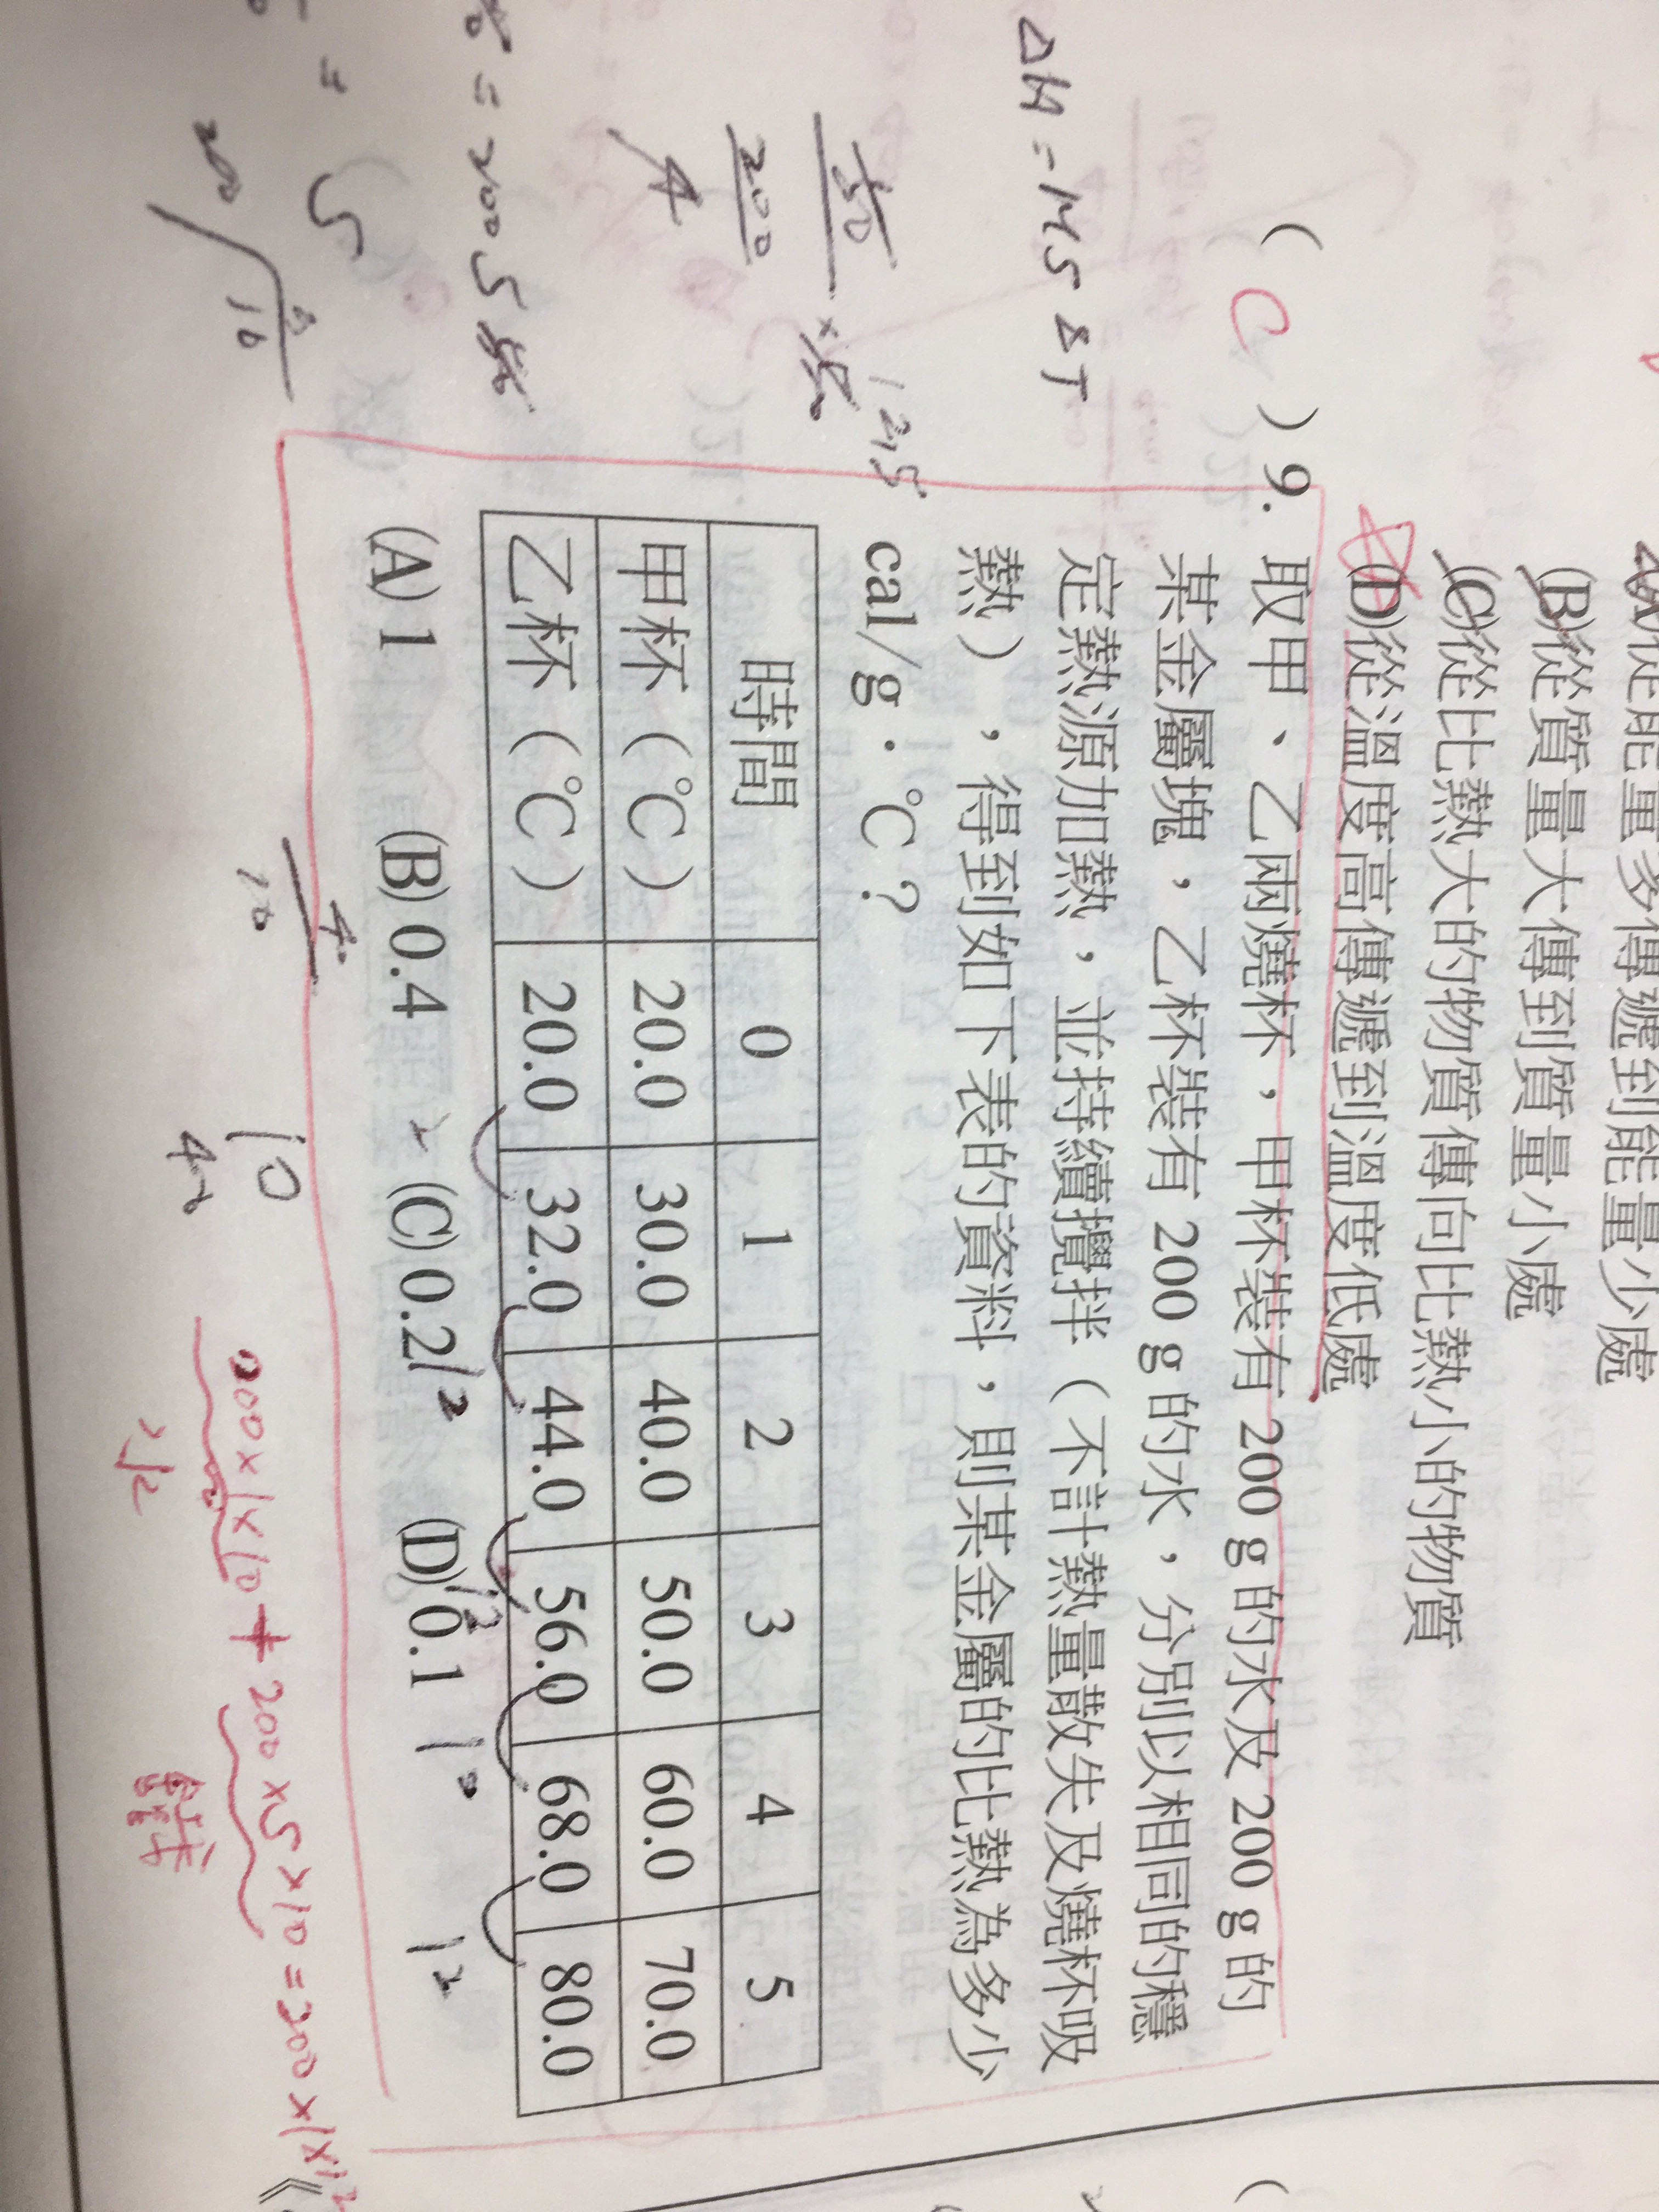 從能量多傳遞到能量少處
(B)從質量大傳到質量小處
(C)從比熱大的物質傳向比熱小的物質
(D)從溫度高傳遞到溫度低處
( C ) 9. 取甲、乙兩燒杯，甲杯裝有 200 g 的水及 200 g 的
某金屬塊，乙杯裝有 200 g 的水，分別以相同的穩
定熱源加熱，並持續攪拌（不計熱量散失及燒杯吸
熱），得到如下表的資料，則某金屬的比熱為多少
cal/g．℃？
時間 0 1 2 3 4 5
甲杯（℃） 20.0 30.0 40.0 50.0 60.0 70.0
乙杯（℃） 20.0 32.0 44.0 56.0 68.0 80.0
(A) 1 (B) 0.4 (C) 0.2 (D) 0.1
12 12 12
ΔH = MSΔT
200
4
= 200 S
= S
200
10
4
10
200×1×10 + 200×S×10 = 200×1×12
水